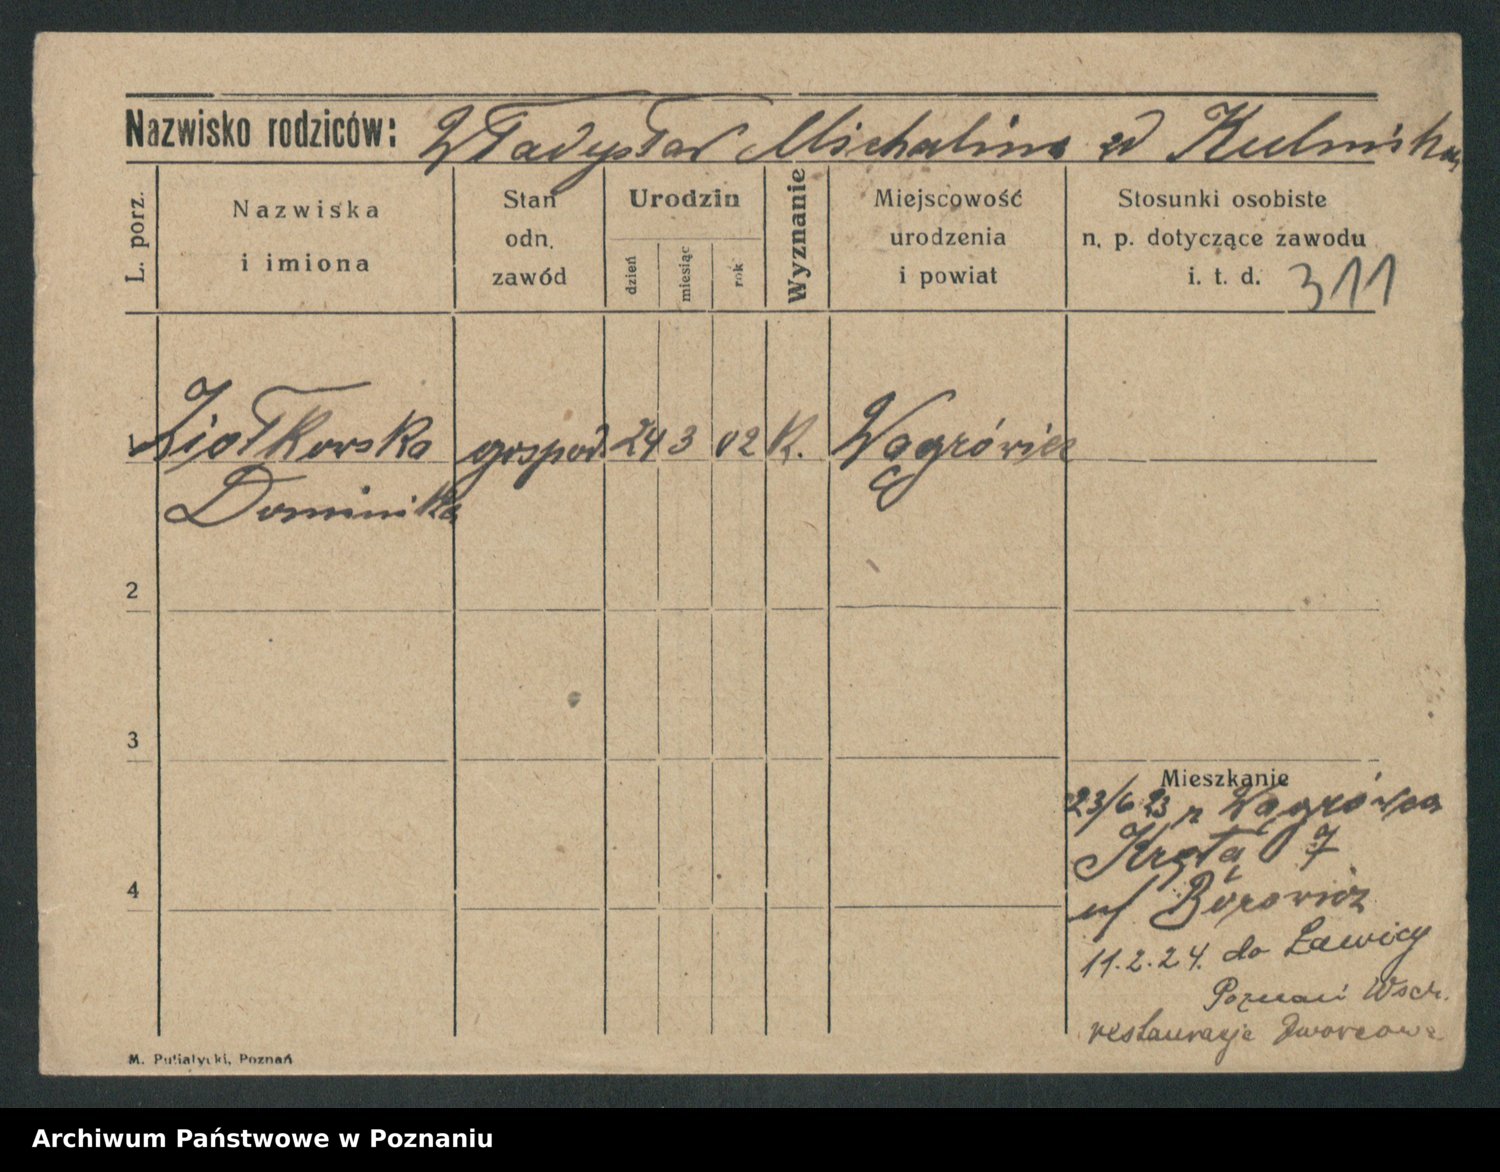 Nazwisko rodziców: Władysław Michalina zd Kulmińska
L. porz.
Nazwiska i imiona
Stan odn. zawód
Urodzin
dzień
miesiąc
rok
Wyznanie
Miejscowość urodzenia i powiat
Stosunki osobiste n. p. dotyczące zawodu i. t. d. 311
1 Ziołkowska gospod. 24 3 02 K. Wągrówiec
Dominika
2
3
Mieszkanie
23/6 23 z Wągrówca
Kręta 7
4
u/ Bórowicz
11.2.24. do Ławicy
Poznań Wsch.
restauracja Dworcowa
M. Putiatycki, Poznań
Archiwum Państwowe w Poznaniu